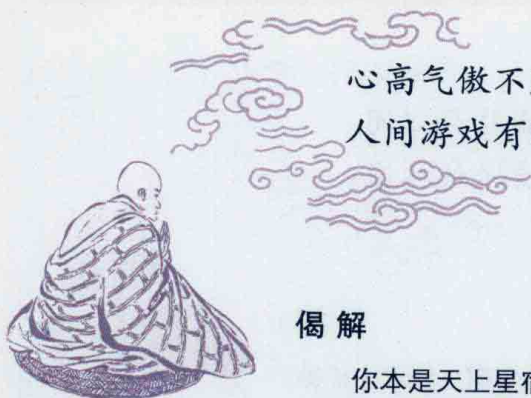 心高气傲不
人间游戏有
偈解
你本是天上星宿